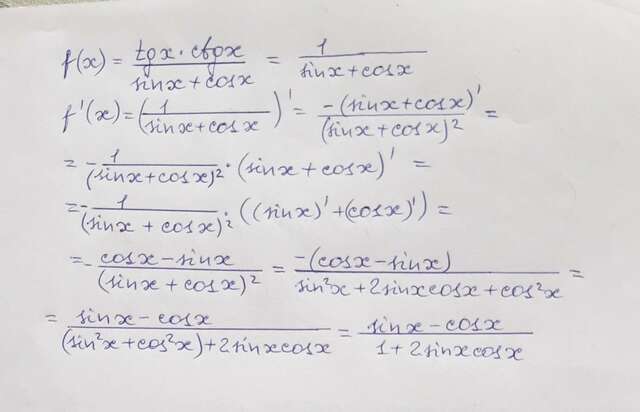 f(x) = (tgx · ctgx)/(sinx + cosx) = 1/(sinx + cosx)
f'(x) = (1/(sinx + cosx))' = (-(sinx + cosx)')/((sinx + cosx)²) =
= -1/((sinx + cosx)²) · (sinx + cosx)' =
= -1/((sinx + cosx)²) · ((sinx)' + (cosx)') =
= -(cosx - sinx)/((sinx + cosx)²) = (-(cosx - sinx))/(sin²x + 2sinxcosx + cos²x) =
= (sinx - cosx)/((sin²x + cos²x) + 2sinxcosx) = (sinx - cosx)/(1 + 2sinxcosx)